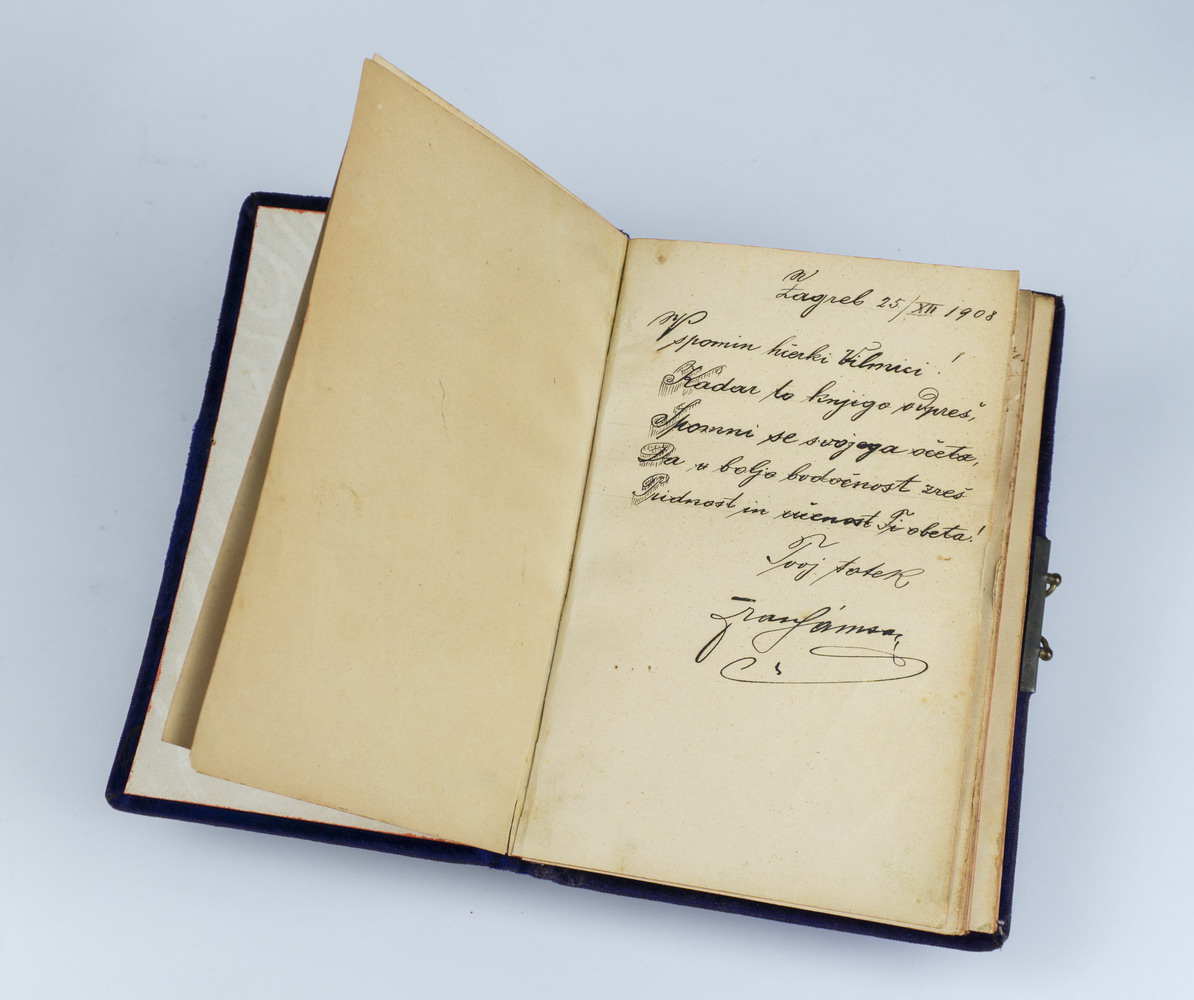 V
Zagreb 25./XII 1908
V spomin hčerki Vilmici!
Kadar to knjigo odpreš,
Spomni se svojega očeta,
Da v boljo bodočnost zreš
Pridnost in učenost Ti obeta!
Tvoj totek